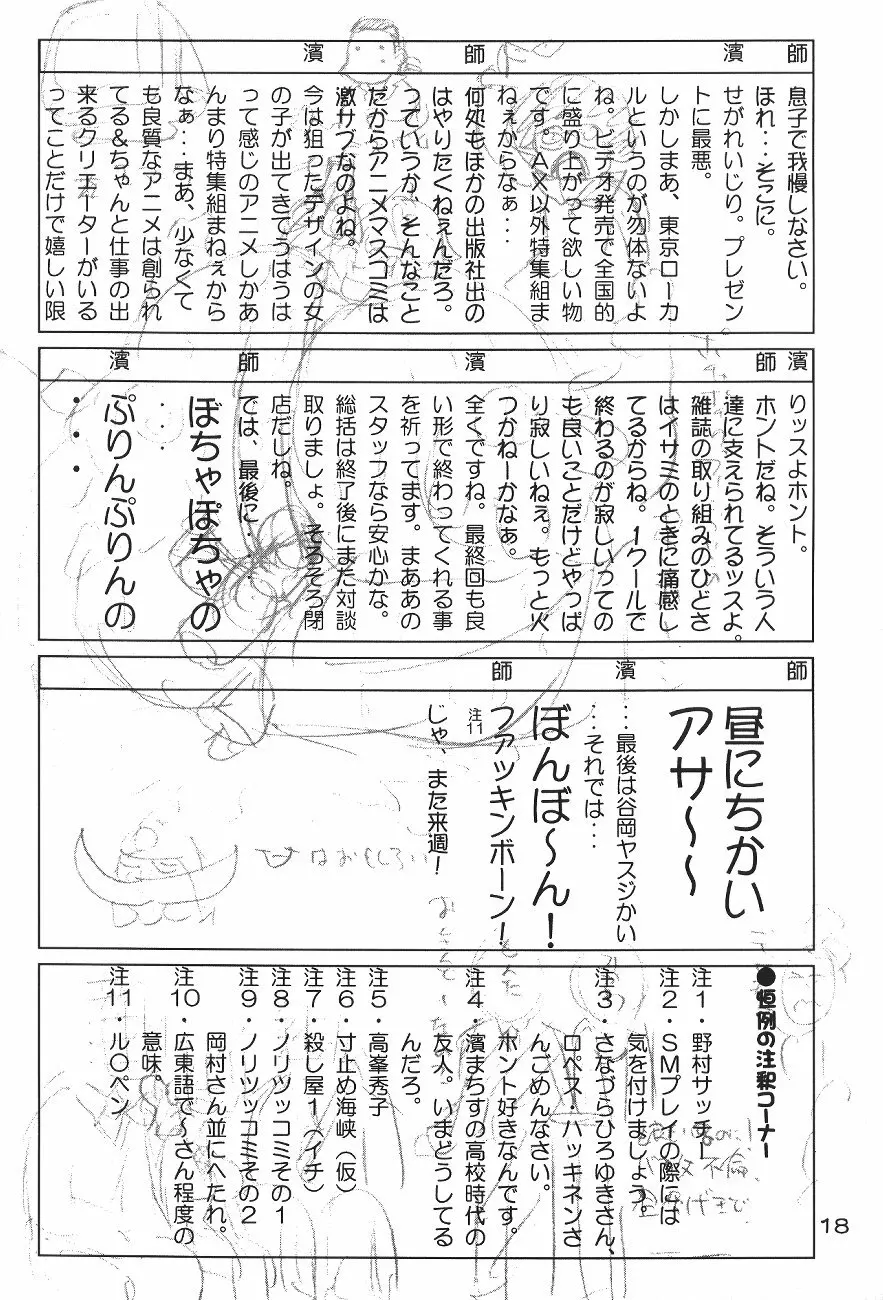 師
息子で我慢しなさい。
ほれ・・・そこに。
濱
せがれいじり。プレゼン
トに最悪。
しかしまあ、東京ローカ
ルというのが勿体ないよ
ね。ビデオ発売で全国的
に盛り上がって欲しい物
です。AX以外特集組ま
ねぇからなぁ・・・
師
何処もほかの出版社出の
はやりたくねぇんだろ。
っていうか、そんなこと
だからアニメマスコミは
激サブなのよね。
濱
今は狙ったデザインの女
の子が出てきてうはうは
って感じのアニメしかあ
んまり特集組まねぇから
なぁ・・・まあ、少なくて
も良質なアニメは創られ
てる&ちゃんと仕事の出
来るクリエーターがいる
ってことだけで嬉しい限
濱
りッスよホント。
師
ホントだね。そういう人
達に支えられてるッスよ。
雑誌の取り組みのひどさ
はイサミのときに痛感し
てるからね。1クールで
終わるのが寂しいっての
も良いことだけどやっぱ
り寂しいねぇ。もっと火
つかねーかなぁ。
濱
全くですね。最終回も良
い形で終わってくれる事
を祈ってます。まああの
スタッフなら安心かな。
総括は終了後にまた対談
取りましょ。そろそろ閉
店だしね。
師
では、最後に・・・
ぼちゃぽちゃの
・・・
濱
ぷりんぷりんの
・・・
師
昼にちかい
アサ〜〜
濱
・・・最後は谷岡ヤスジかい
・・・それでは・・・
ぼんぼ〜ん!
師
ファッキンボーン!
注11
じゃ、また来週!
●恒例の注釈コーナー
注1・野村サッチー
注2・SMプレイの際には
気を付けましょう。
注3・さなづらひろゆきさん、
ロペス・ハッキネンさ
んごめんなさい。
ホント好きなんです。
注4・濱まちすの高校時代の
友人。いまどうしてる
んだろ。
注5・高峯秀子
注6・寸止め海峡(仮)
注7・殺し屋1(イチ)
注8・ノリツッコミその1
注9・ノリツッコミその2
岡村さん並にへたれ。
注10・広東語で〜さん程度の
意味。
注11・ル〇ペン
はおもしろい
18